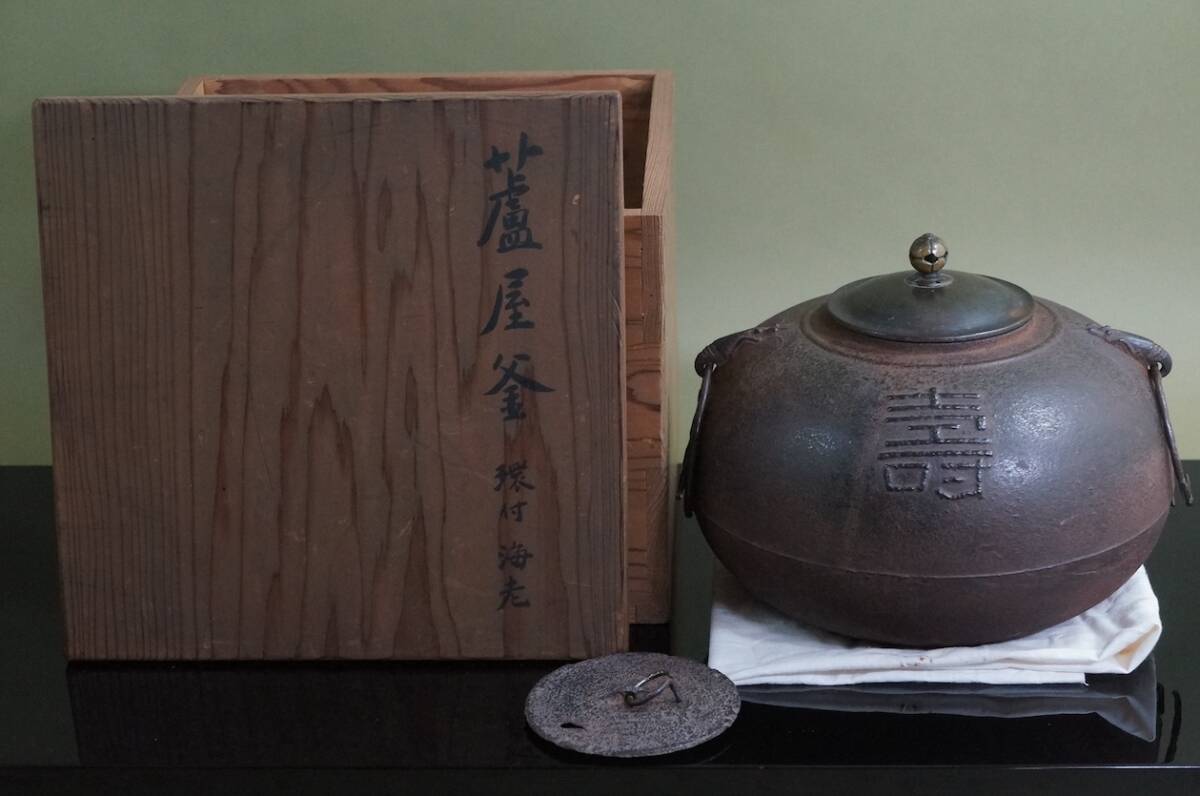 蘆屋釜 環付 海老
壽